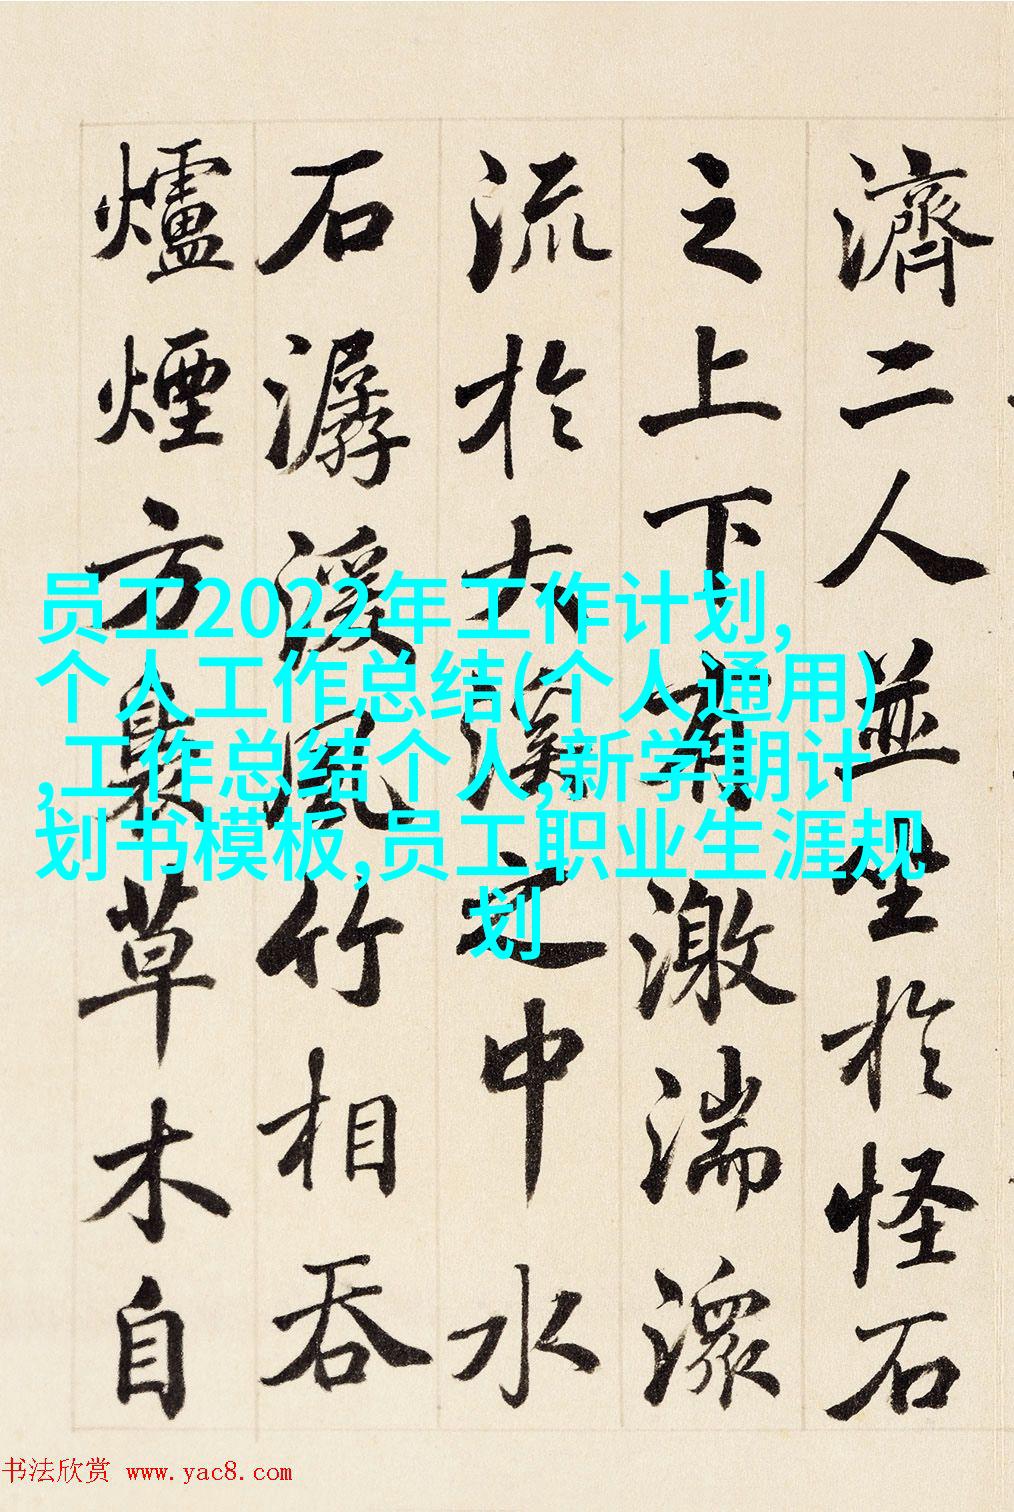 濟二人並坐於怪石
之上下有激湍潀
流於大溪之中水
石潺湲風竹相吞
爐煙方裊草木自
员工2022年工作计划,
个人工作总结(个人通用)
,工作总结个人,新学期计
划书模板,员工职业生涯规
划
书法欣赏 www.yac8.com